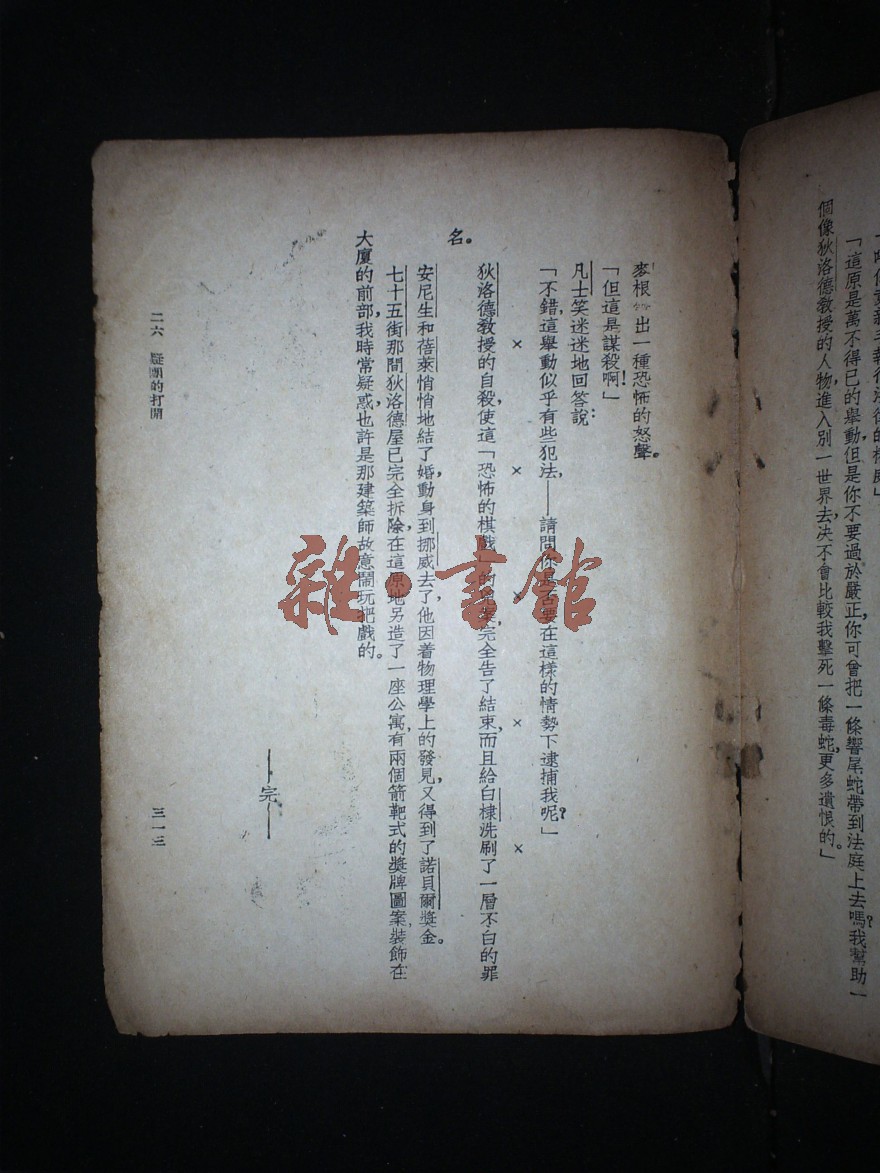 「這原是萬不得已的舉動,但是你不要過於嚴正,你可曾把一條響尾蛇帶到法庭上去嗎?我幫助一
個像狄洛德教授的人物,進入別一世界去,決不會比較我擊死一條毒蛇,更多遺恨的。」
麥根 出一種恐怖的怒聲。
「但這是謀殺啊!」
凡士笑迷迷地回答說:
「不錯,這舉動似乎有些犯法,——請問你是否要在這樣的情勢下逮捕我呢?」
× × × × ×
狄洛德教授的自殺,使這「恐怖的棋戲」的 完全告了結束,而且給白棣洗刷了一層不白的罪
名。
安尼生和蓓萊悄悄地結了婚,動身到挪威去了,他因着物理學上的發見,又得到了諾貝爾獎金。
七十五街那間狄洛德屋已完全拆除,在這原地另造了一座公寓,有兩個箭靶式的獎牌圖案,裝飾在
大廈的前部,我時常疑惑也許是那建築師故意鬧玩把戲的。
——完——
二六 疑團的打開
三一三
雜·書館